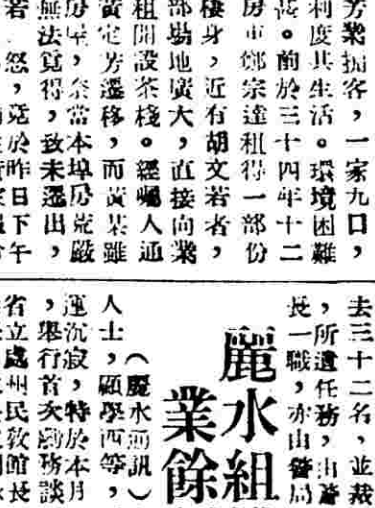 芳業掮客,一家九口,
利度其生活。環境困難
。前於三十四年十二
房東鄭宗達租得一部份
棲身,近有胡文若者,
部場地廣大,直接向業
租開設茶棧。經囑人通
黃定芳遷移,而黃某雖
房屋,奈當本埠房荒嚴
無法覓得,致未遷出,
若 怒,竟於昨日下午
去三十二名,並裁
,所遺任務,由警
長一職,亦由警局
麗水組
業餘
(麗水通訊)
人士,顧學西等,
運沉寂,特於本月
,舉行首次劇務談
省立處州民教館長